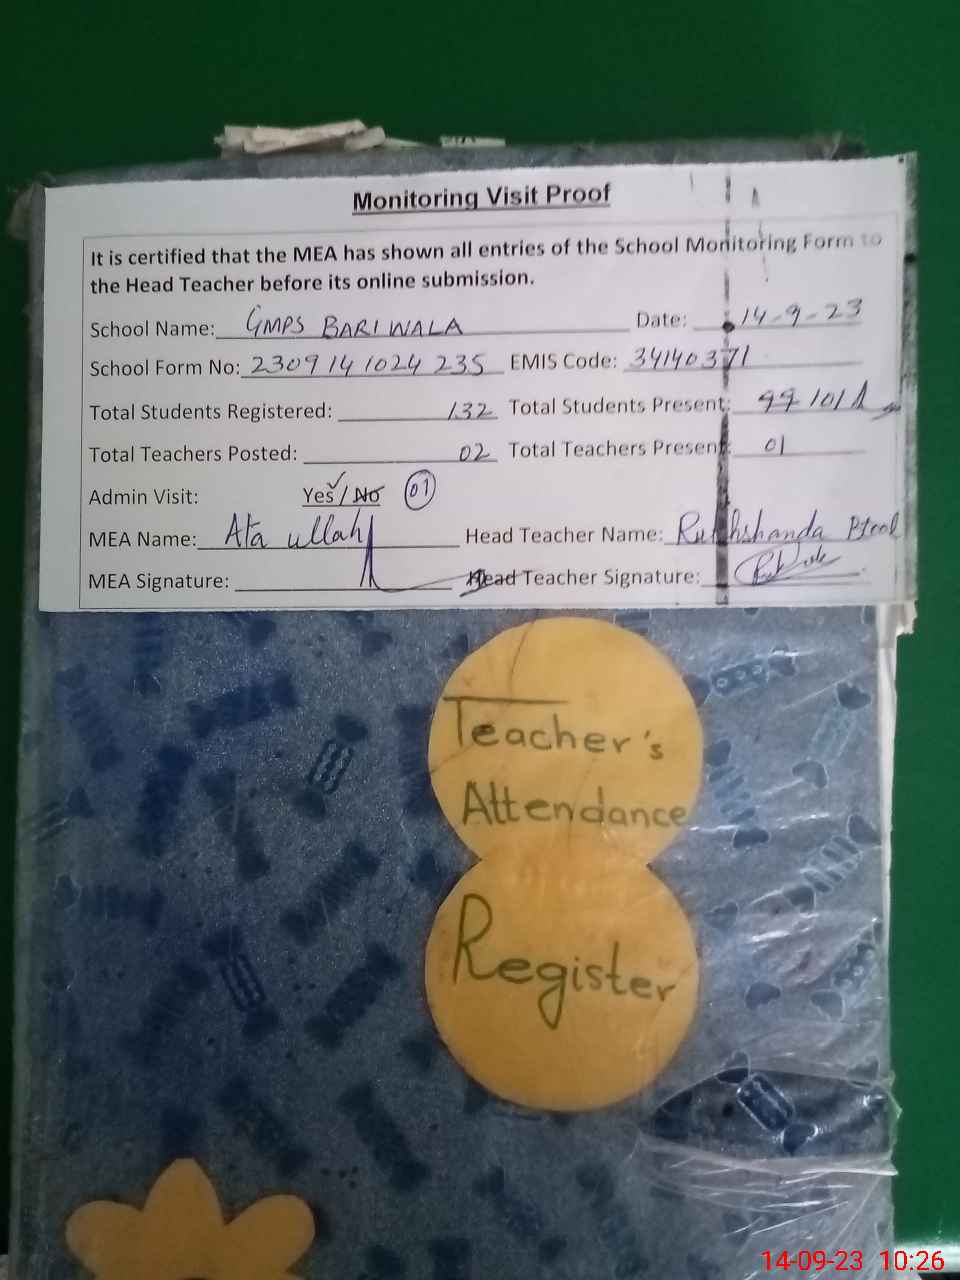 Monitoring Visit Proof
It is certified that the MEA has shown all entries of the School Monitoring Form to
the Head Teacher before its online submission.
School Name: GMPS BARIWALA Date: 14-9-23
School Form No: 2309141024235 EMIS Code: 34140371
Total Students Registered: 132 Total Students Present: 101
Total Teachers Posted: 02 Total Teachers Present: 01
Admin Visit: Yes / No 01
MEA Name: Ata ullah Head Teacher Name: Rukhshanda
MEA Signature: Head Teacher Signature:
Teacher's
Attendance
Register
14-09-23 10:26